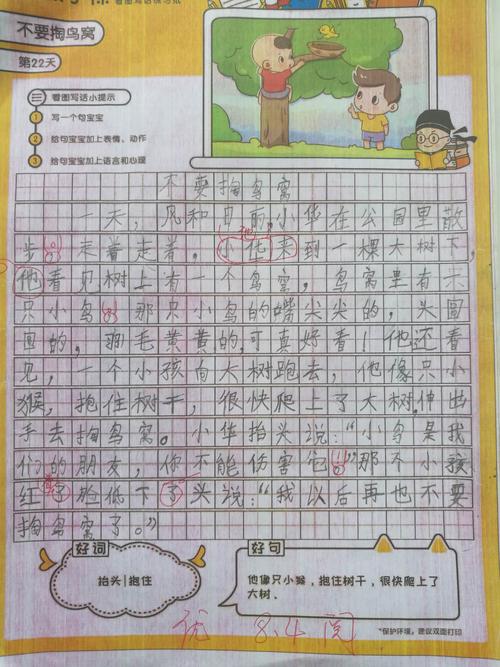 看图写话练习纸
不要掏鸟窝
第22天
看图写话小提示
1 写一个句宝宝
2 给句宝宝加上表情、动作
3 给句宝宝加上语言和心理
不要掏鸟窝
一天，风和日丽，小华在公园里散
步。走着走着，小华来到一棵大树下，
他
他看见树上有一个鸟窝，鸟窝里有六
只小鸟。那只小鸟的嘴尖尖的，头圆
圆的，羽毛黄黄的，可真好看！他还看
见，一个小孩向大树跑去，他像只小
猴，抱住树干，很快爬上了大树，伸出
手去掏鸟窝。小华抬头说：“小鸟是我
们的朋友，你不能伤害它。”那个小孩
红了脸低下了头说：“我以后再也不要
掏鸟窝了。”
好词
抬头 抱住
好句
他像只小猴，抱住树干，很快爬上了
大树。
优 8.4 阅
“保护环境，建议双面打印